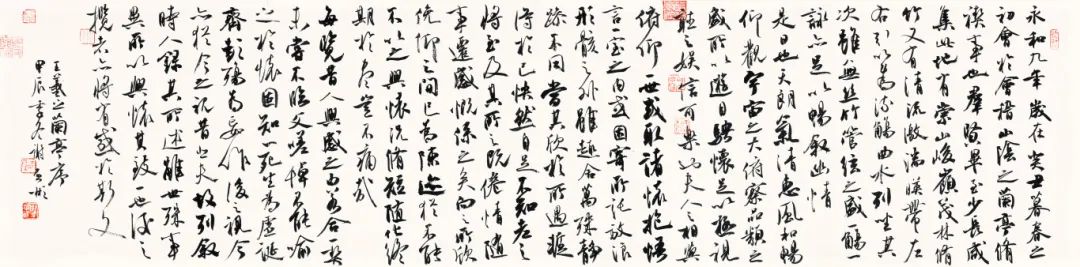 永和九年歲在癸丑暮春之
初會於會稽山陰之蘭亭脩
禊事也群賢畢至少長咸
集此地有崇山峻嶺茂林脩
竹又有清流激湍暎帶左
右引以為流觴曲水列坐其
次雖無絲竹管絃之盛一觴一
詠亦足以暢敘幽情
是日也天朗氣清惠風和暢
仰觀宇宙之大俯察品類之
盛所以遊目騁懷足以極視
聽之娛信可樂也夫人之相與
俯仰一世或取諸懷抱悟
言一室之內或因寄所託放浪
形骸之外雖趣舍萬殊靜
躁不同當其欣於所遇蹔
得於己怏然自足不知老之
將至及其所之既倦情隨
事遷感慨係之矣向之所欣
俛仰之間已為陳迹猶不能
不以之興懷況脩短隨化終
期於盡豈不痛哉
每覽昔人興感之由若合一契
未嘗不臨文嗟悼不能喻
之於懷固知一死生為虛誕
齊彭殤為妄作後之視今
亦猶今之視昔悲夫故列敘
時人錄其所述雖世殊事
異所以興懷其致一也後之
攬者亦將有感於斯文
王羲之蘭亭序
甲辰